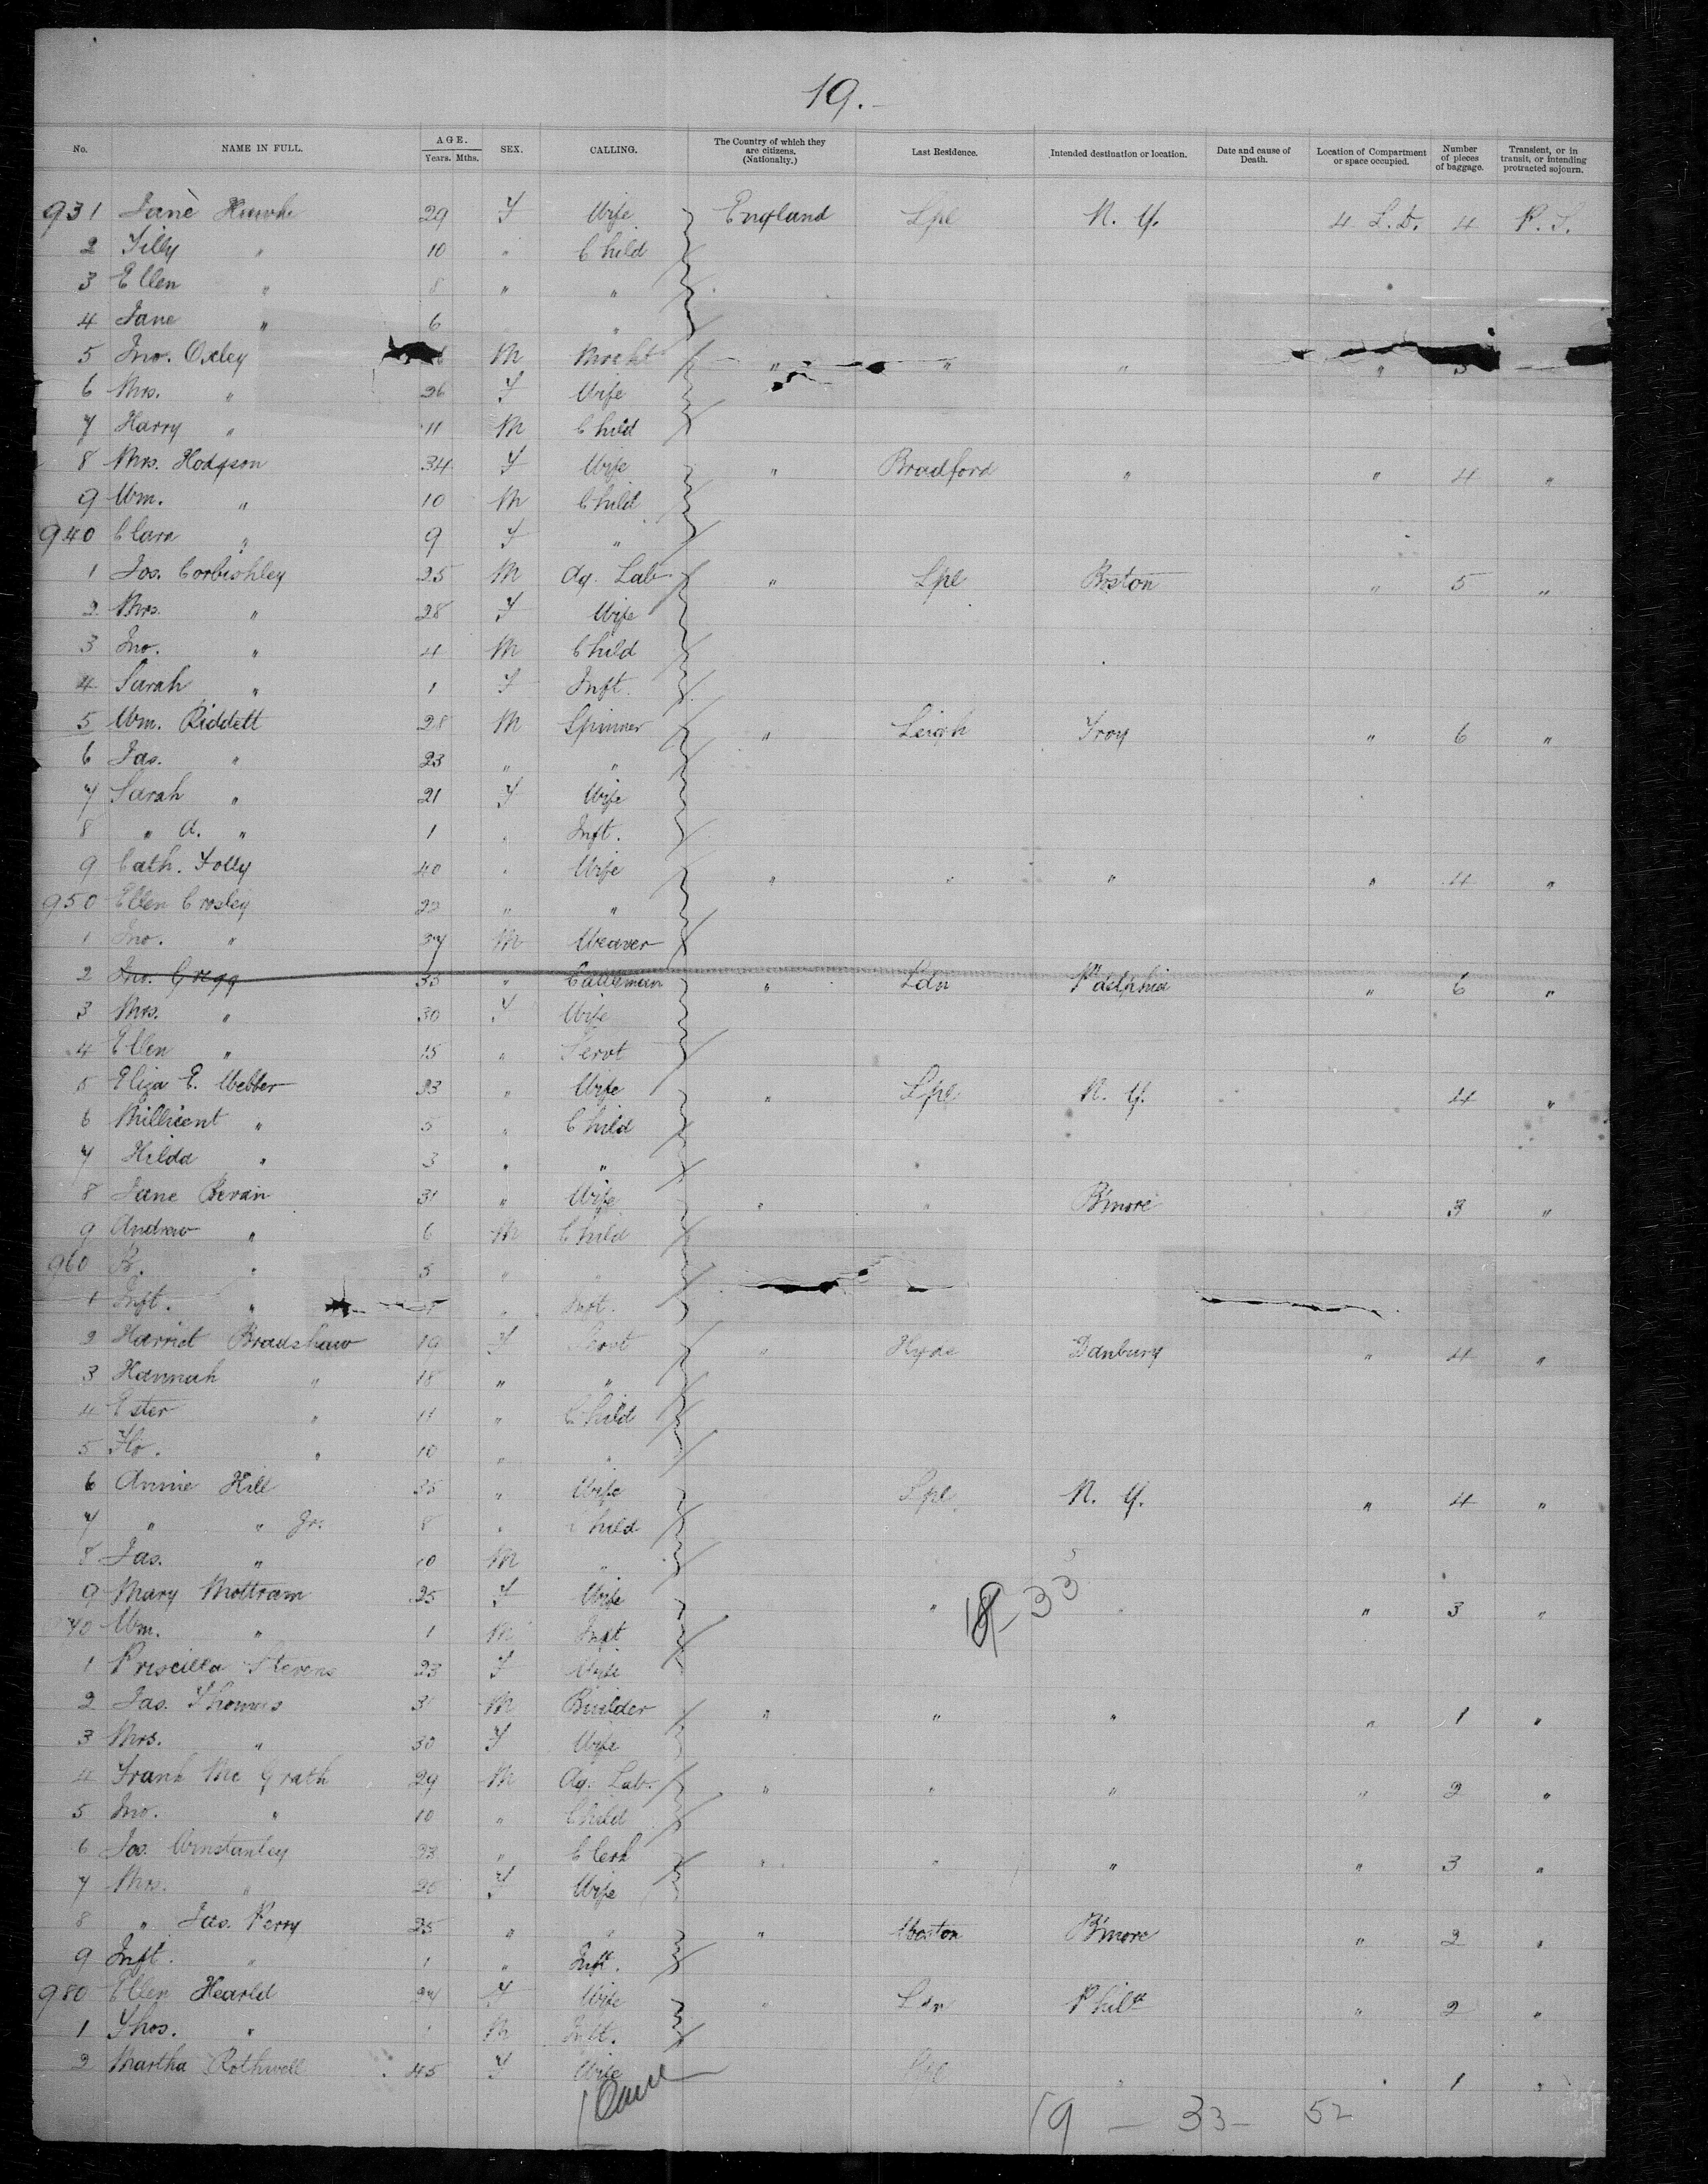 19.-
No. NAME IN FULL. AGE. Years. Mths. SEX. CALLING. The Country of which they are citizens. (Nationality.) Last Residence. Intended destination or location. Date and cause of Death. Location of Compartment or space occupied. Number of pieces of baggage. Transient, or in transit, or intending protracted sojourn.
931 Jane 29 F Wife England Lpl N. Y. 4 L.D. 4 P. S.
2 Tilly " 10 " Child
3 Ellen " 8 " "
4 Jane " 6 "
5 Jno. Oxley M " " " " "
6 Mrs. " 26 F Wife
7 Harry " 11 M Child
8 Mrs. Hodgson 34 F Wife " Bradford " " 4 "
9 Wm. " 10 M Child
940 Clara " 9 F "
1 Jos. Corbishley 25 M Ag. Lab. " Lpl Boston " 5 "
2 Mrs. " 28 F Wife
3 Jno. " 4 M Child
4 Sarah " 1 F Inft.
5 Wm. Riddett 28 M Spinner " Leigh Troy " 6 "
6 Jas. " 23 " "
7 Sarah " 21 F Wife
8 " A. " 1 " Inft.
9 Cath. Folly 40 " Wife " " " " 4 "
950 Ellen Crosley " "
1 Jno. " 37 M Weaver
2 Jno. Gregg 33 " Cattleman " Ldn P'delphia " 6 "
3 Mrs. " 30 F Wife
4 Ellen " 15 " Servt
5 Eliza E. Webber 23 " Wife " Lpl N. Y. 4 "
6 Millicent " " Child
7 Hilda " 3 " "
8 Jane Bevan 31 " Wife " " B'more 3 "
9 Andrew " 6 M Child
960 " 5 " "
1 Inft. " " Inft.
2 Harriet Bradshaw 19 F Servt " Hyde Danbury " 4 "
3 Hannah " 18 " "
4 Ester " 11 " Child
5 Flo. " 10 " "
6 Annie Hill 35 " Wife Lpl N. Y. " 4 "
7 " " Jr. 8 " Child
8 Jas. " 10 M "
9 Mary Mottram 25 F Wife " " " 3 "
33
70 Wm. " 1 M Inft
1 Priscilla Stevens 23 F Wife
2 Jas. Thomas M Builder " " " " 1 "
3 Mrs. " 30 F Wife
4 Frank Mc Grath 29 M Ag. Lab. " " " " 2 "
5 Jno. " 10 " Child
6 Jos. Winstanley 23 " Clerk " " " " 3 "
7 Mrs. " F Wife
8 " Jas. Perry 25 " " " Weston B'more " 2 "
9 Inft. " 1 " Inft.
980 Ellen Hearld F Wife " Ldn Phila " 2 "
1 Thos. " M Inft.
2 Martha Rothwell 45 F Wife " " 1 "
19 - 33 - 52